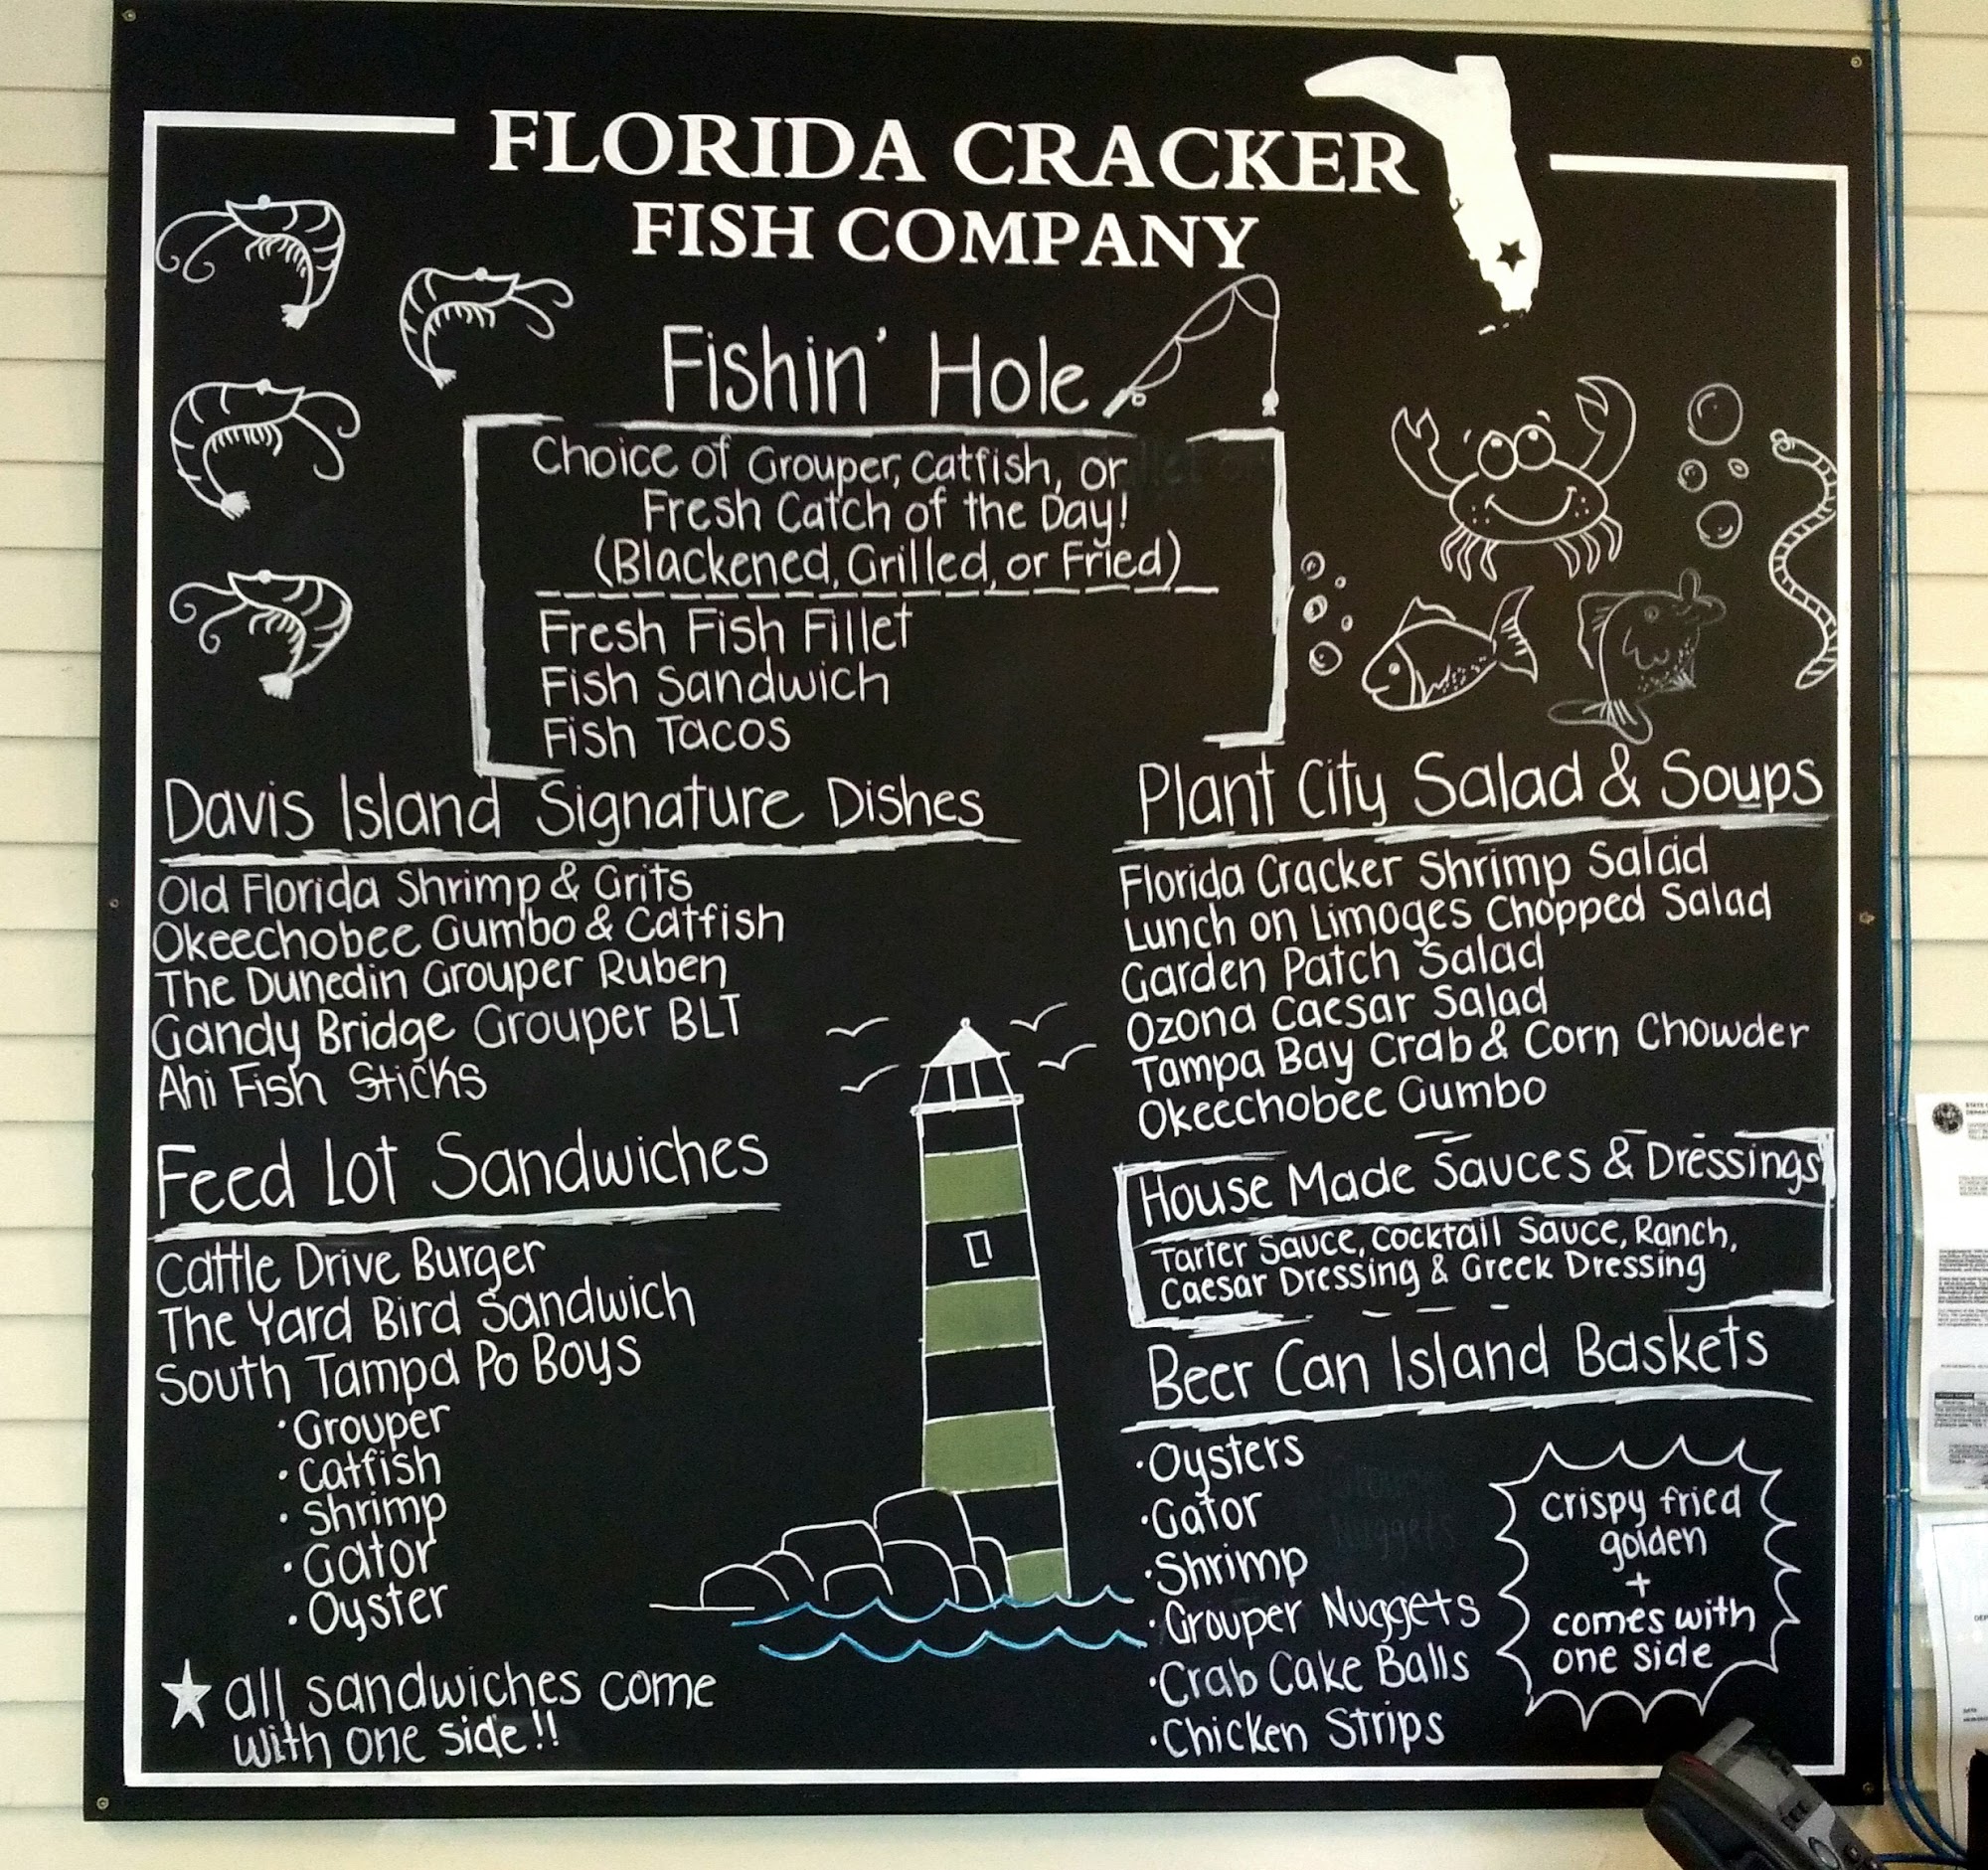 FLORIDA CRACKER
FISH COMPANY
Fishin' Hole
Choice of Grouper, Catfish, or
Fresh Catch of the Day!
(Blackened, Grilled, or Fried)
Fresh Fish Fillet
Fish Sandwich
Fish Tacos
Davis Island Signature Dishes
Old Florida Shrimp & Grits
Okeechobee Gumbo & Catfish
The Dunedin Grouper Ruben
Gandy Bridge Grouper BLT
Ahi Fish Sticks
Feed Lot Sandwiches
Cattle Drive Burger
The Yard Bird Sandwich
South Tampa Po Boys
·Grouper
·Catfish
·Shrimp
·Gator
·Oyster
★ all sandwiches come
with one side!!
Plant City Salad & Soups
Florida Cracker Shrimp Salad
Lunch on Limoges Chopped Salad
Garden Patch Salad
Ozona Caesar Salad
Tampa Bay Crab & Corn Chowder
Okeechobee Gumbo
House Made Sauces & Dressings
Tarter Sauce, Cocktail Sauce, Ranch,
Caesar Dressing & Greek Dressing
Beer Can Island Baskets
·Oysters
·Gator
·Shrimp
·Grouper Nuggets
·Crab Cake Balls
·Chicken Strips
crispy fried
golden
+
comes with
one side